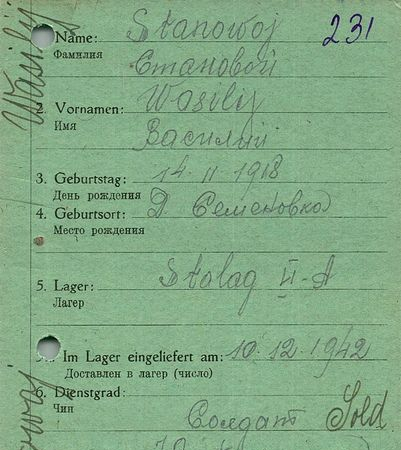 Name: Stanowoj 231
Фамилия Становой
2 Vornamen: Wasilij
Имя Василий
3. Geburtstag: 14 II 1918
День рождения
4. Geburtsort: Д Семеновка
Место рождения
5. Lager: Stalag II-A
Лагер
Im Lager eingeliefert am: 10.12.1942
Доставлен в лагер (число)
6. Dienstgrad:
Чин Солдат Sold
Wasilij